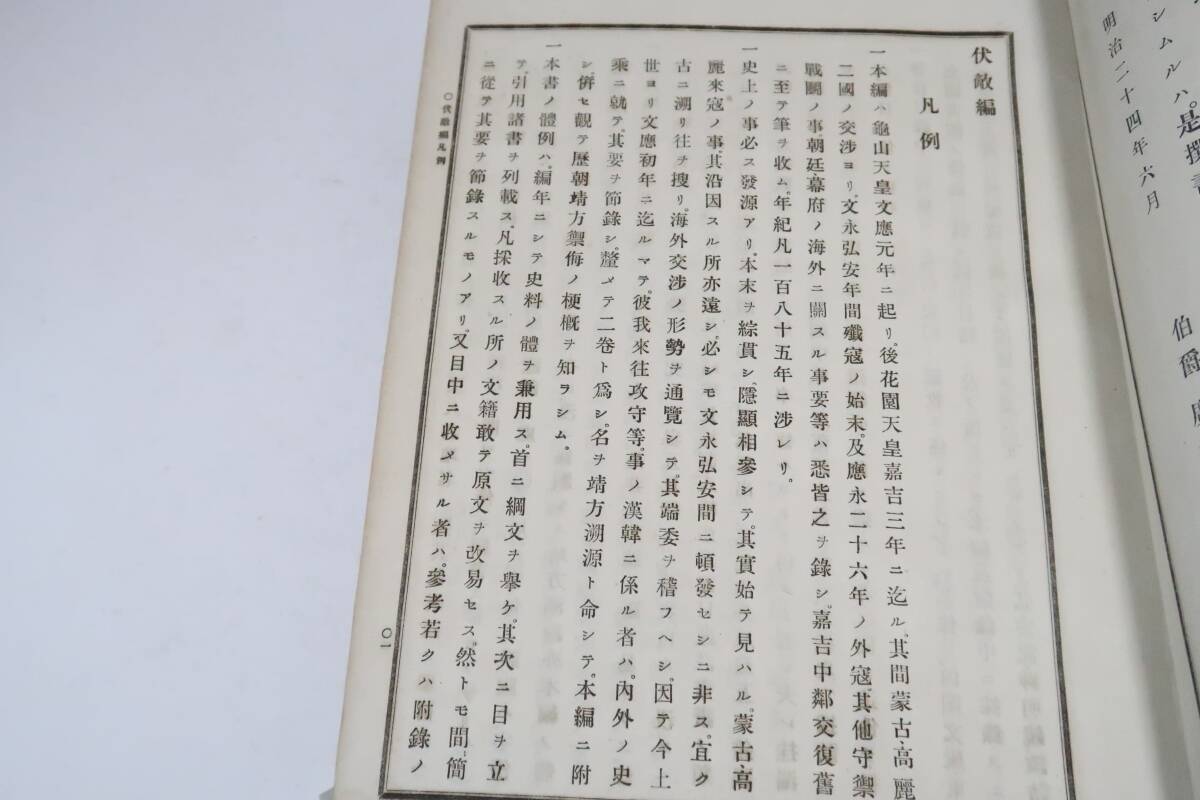 シムルハ。是撰
明治二十四年六月
伯爵
伏敵編
凡例
一本編ハ龜山天皇文應元年ニ起リ。後花園天皇嘉吉三年ニ迄ル。其間蒙古、高麗
二國ノ交渉ヨリ。文永弘安年間殲寇ノ始末。及應永二十六年ノ外寇。其他守禦
戰鬪ノ事朝廷幕府ノ海外ニ關スル事要等ハ悉皆之ヲ錄シ。嘉吉中鄰交復舊
ニ至テ筆ヲ收ム。年紀凡一百八十五年ニ涉レリ。
一史上ノ事必ス發源アリ。本末ヲ綜貫シ。隱顯相參シテ。其實始テ見ハル。蒙古、高
麗來寇ノ事。其沿因スル所亦遠シ。必シモ文永弘安間ニ頓發セシニ非ス。宜ク
古ニ溯リ往ヲ搜リ。海外交涉ノ形勢ヲ通覽シテ。其端委ヲ稽フヘシ。因テ今上
世ヨリ文應初年ニ迄ルマテ。彼我來往攻守等。事ノ漢韓ニ係ル者ハ。內外ノ史
乘ニ就テ。其要ヲ節錄シ。釐メテ二卷ト爲シ。名ヲ靖方溯源ト命シテ。本編ニ附
シ。併セ觀テ歷朝靖方禦侮ノ梗槪ヲ知ラシム。
一本書ノ體例ハ。編年ニシテ史料ノ體ヲ兼用ス。首ニ綱文ヲ擧ケ。其次ニ目ヲ立
テ。引用諸書ヲ列載ス。凡採收スル所ノ文籍敢テ原文ヲ改易セス。然トモ間簡
ニ從テ其要ヲ節錄スルモノアリ。又目中ニ收メサル者ハ。參考若クハ附錄ノ
〇伏敵編凡例
〇一